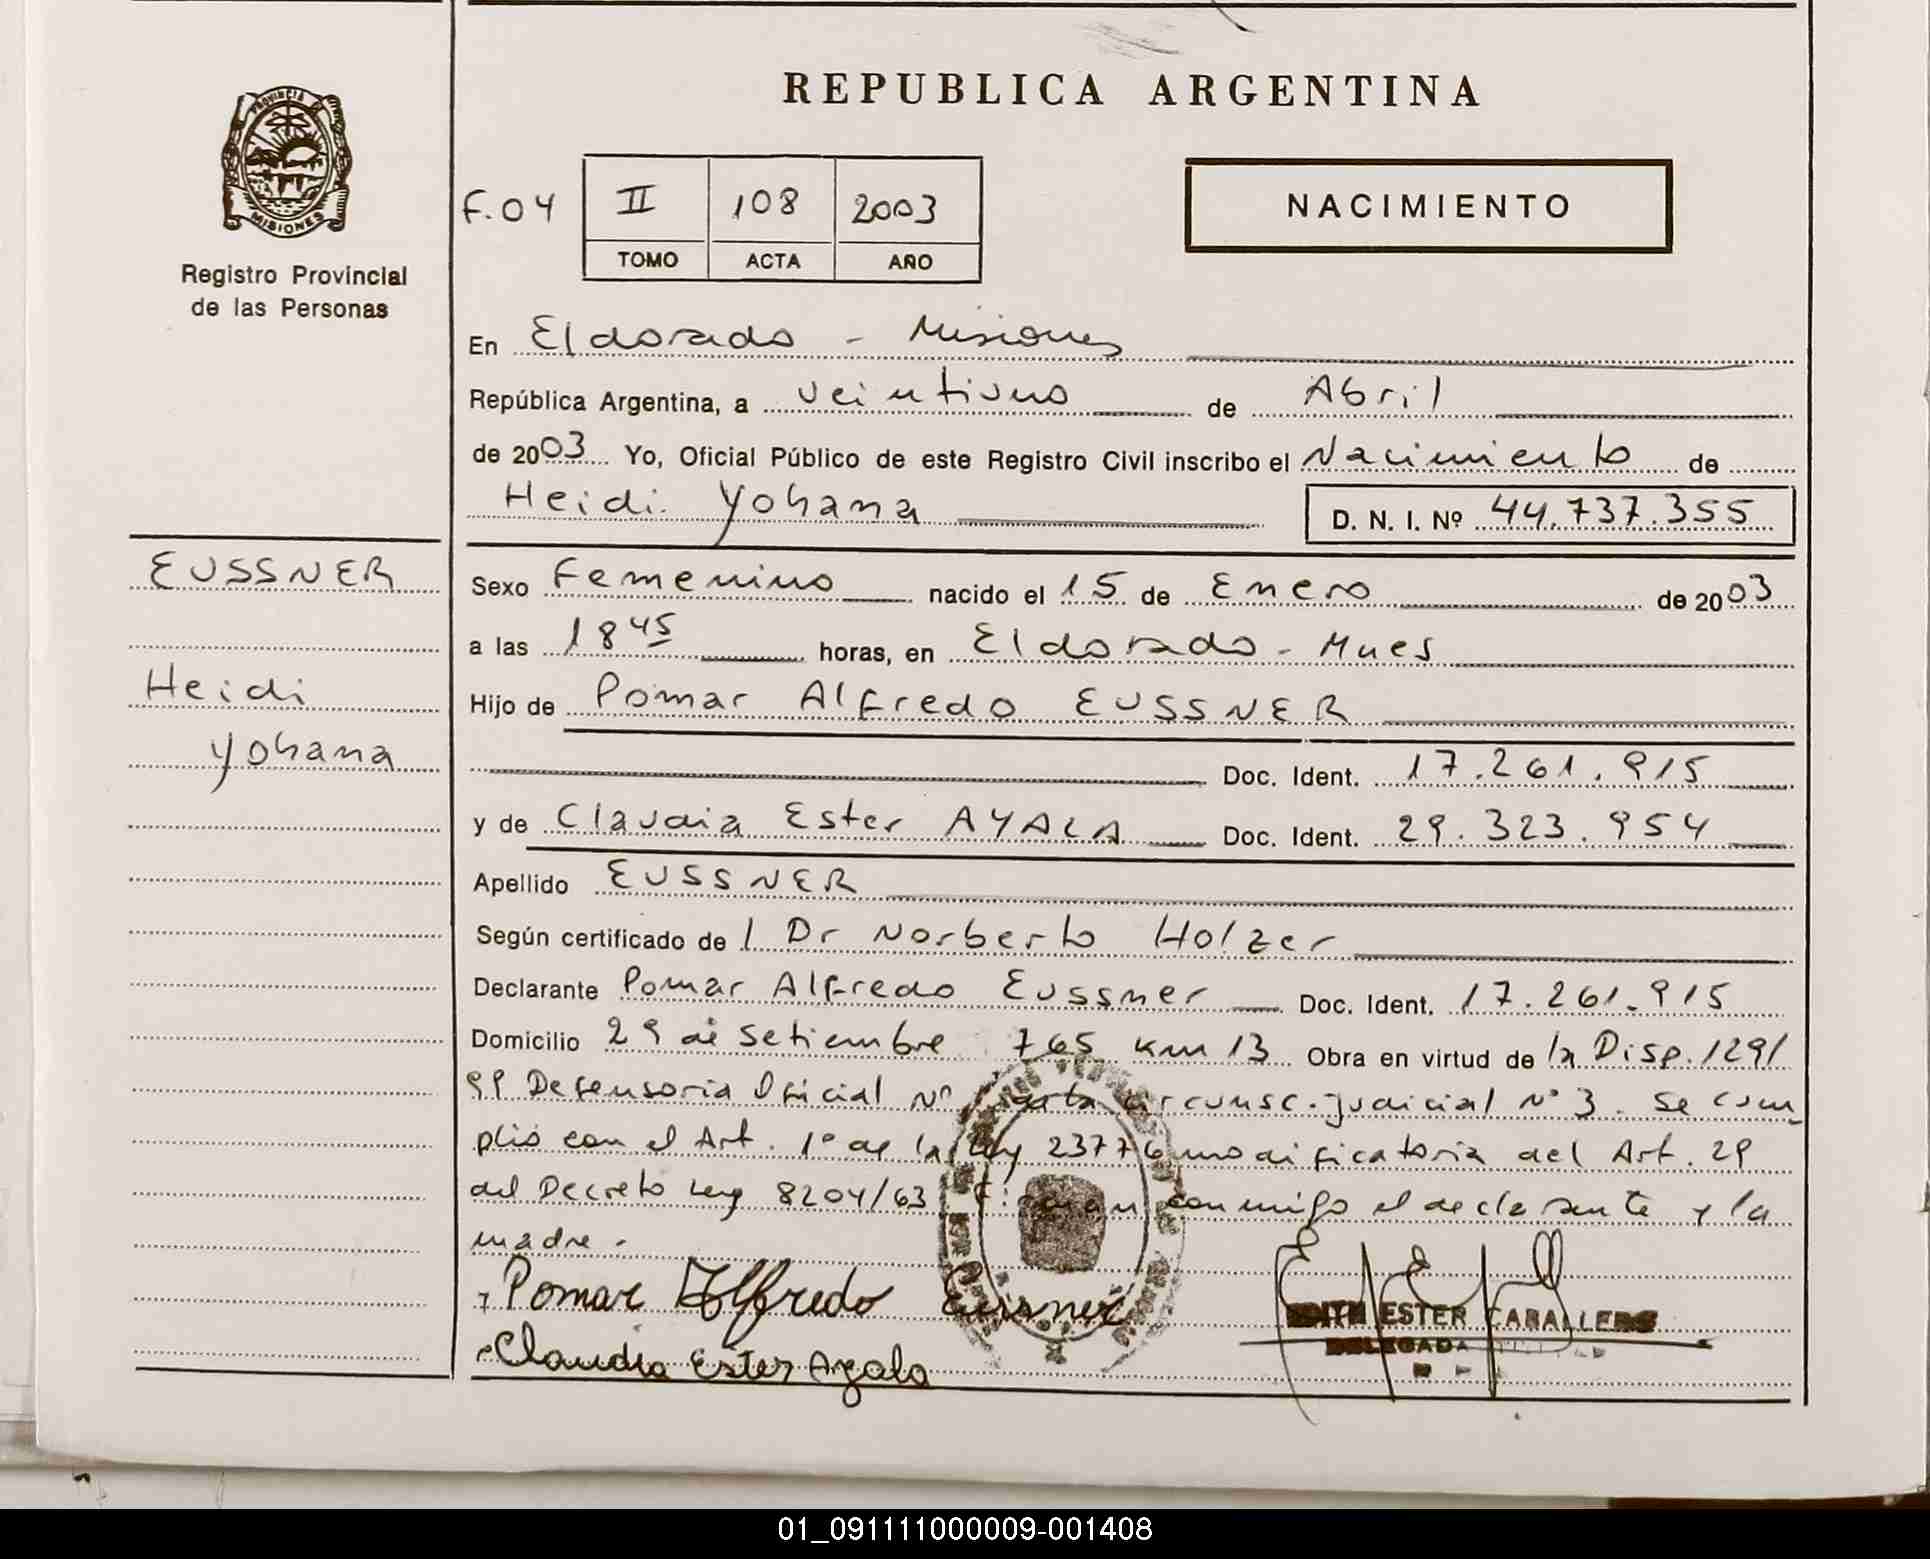 REPUBLICA ARGENTINA
PROVINCIA
MISIONES
Registro Provincial
de las Personas
F.04 II 108 2003
TOMO ACTA AÑO
NACIMIENTO
En Eldorado - Misiones
República Argentina, a veintiuno de Abril
de 2003 Yo, Oficial Público de este Registro Civil inscribo el Nacimiento de
Heidi Yohana D. N. I. Nº 44.737.355
EUSSNER
Heidi
Yohana
Sexo Femenino nacido el 15 de Enero de 2003
a las 18 45 horas, en Eldorado - Mnes
Hijo de Pomar Alfredo EUSSNER
Doc. Ident. 17.261.915
y de Claudia Ester AYALA Doc. Ident. 29.323.954
Apellido EUSSNER
Según certificado de l Dr Norberto Holzer
Declarante Pomar Alfredo Eussner Doc. Ident. 17.261.915
Domicilio 29 de Setiembre 765 Km 13 Obra en virtud de la Disp. 1291
99 Defensoria Oficial Nº circunsc. judicial Nº 3. Se cum
plió con el Art. 1º de la Ley 23776 modificatoria del Art. 29
del Decreto Ley 8204/63 Firman conmigo el declarante y la
madre.
Pomar Alfredo Eussner
Claudia Ester Ayala
EDITH ESTER CABALLERO
DELEGADA
01_091111000009-001408